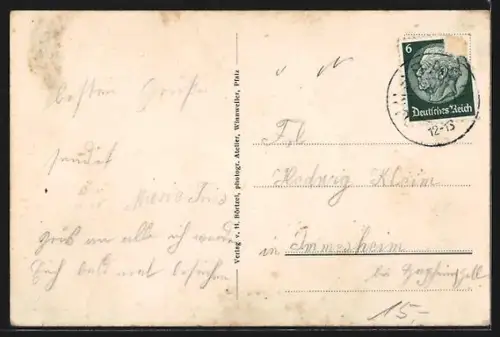 besten Grüße
sendet
Gruß an alle ich werde
Euch bald mal besuchen
Verlag v. H. Börtzel, photogr. Atelier, Winnweiler, Pfalz
6
Deutsches Reich
12-13
Frl.
Hedwig Kleim
in Immesheim
bei
15.-